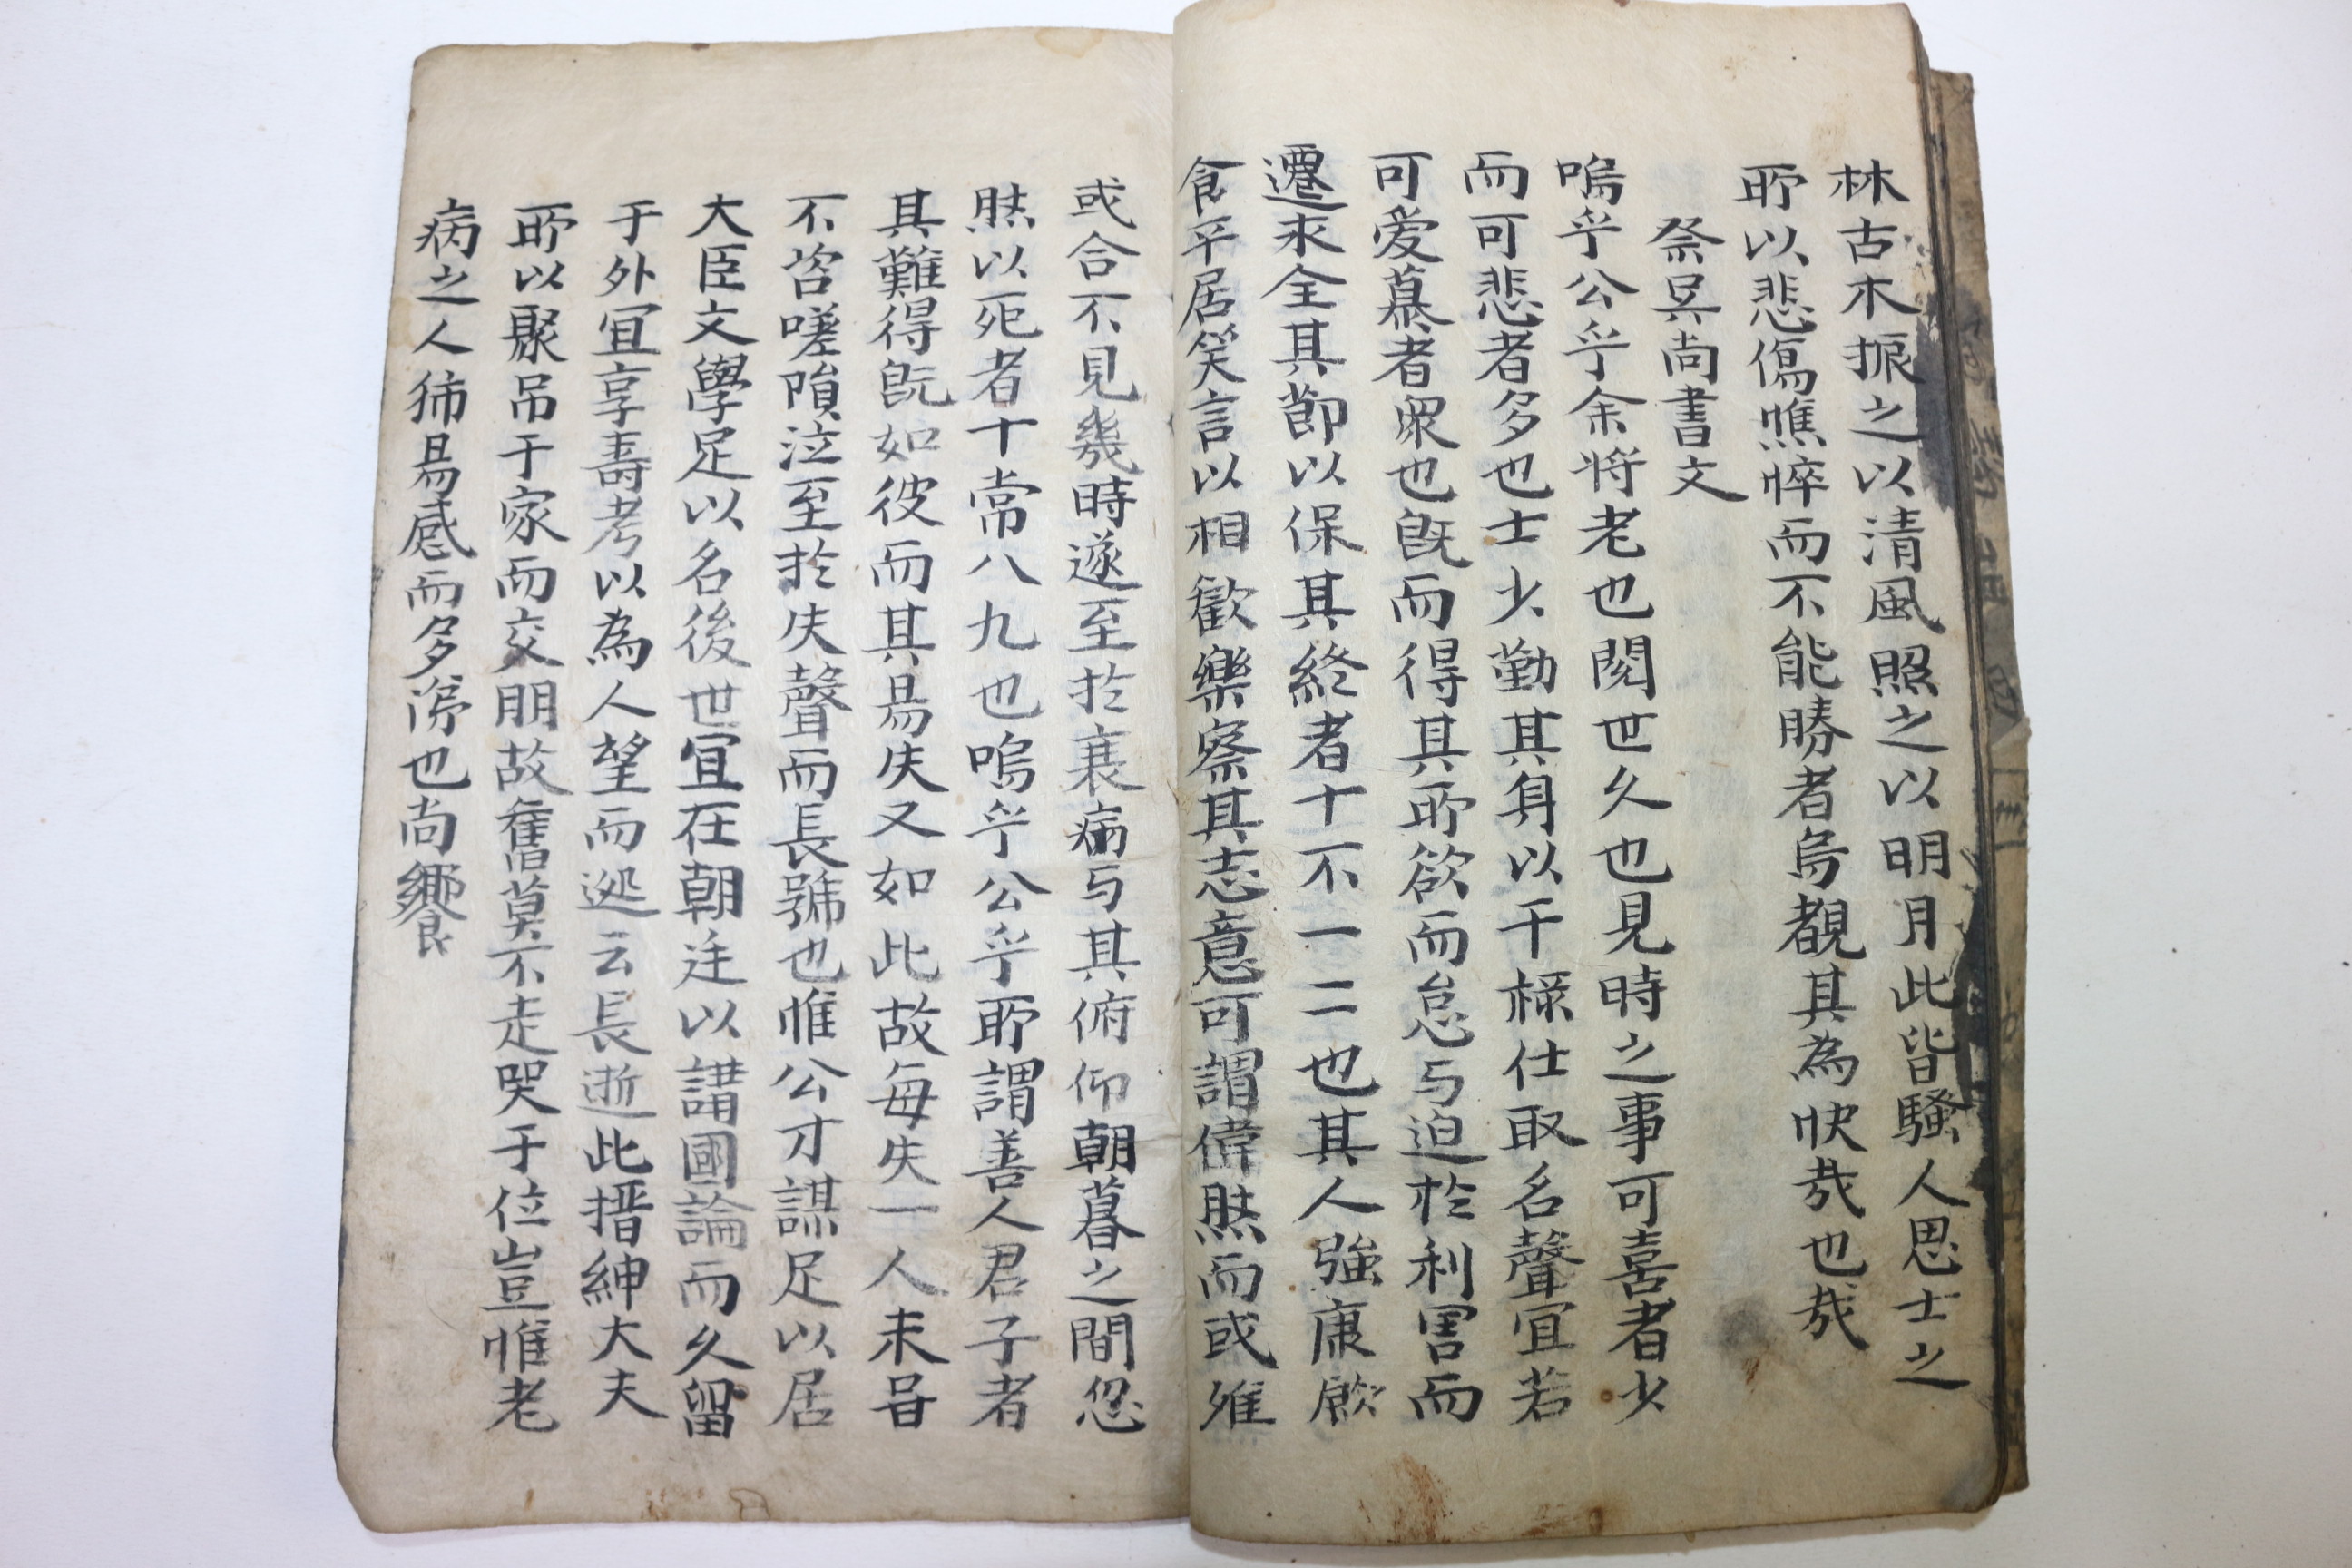 林古木振之以清風照之以明月此皆騷人思士之
所以悲傷憔悴而不能勝者烏覩其為快㢤也㢤
祭吳尚書文
嗚乎公乎余將老也閱世久也見時之事可喜者少
而可悲者多也士少勤其身以干祿仕取名聲宜若
可爱慕者衆也旣而得其所欲而怠与迫於利害而
遷求全其節以保其終者十不一二也其人強康飮
食平居笑言以相歡樂察其志意可謂偉然而或離
或合不見幾時遂至於衰病与其俯仰朝暮之間忽
然以死者十常八九也嗚乎公乎所謂善人君子者
其難得旣如彼而其易失又如此故每失一人未甞
不咨嗟隕泣至於失聲而長號也惟公才謀足以居
大臣文學足以名後世宜在朝廷以講國論而久留
于外宜享壽考以為人望而遽云長逝此搢紳大夫
所以聚吊于家而交朋故舊莫不走哭于位豈惟老
病之人獨易感而多涕也尚饗